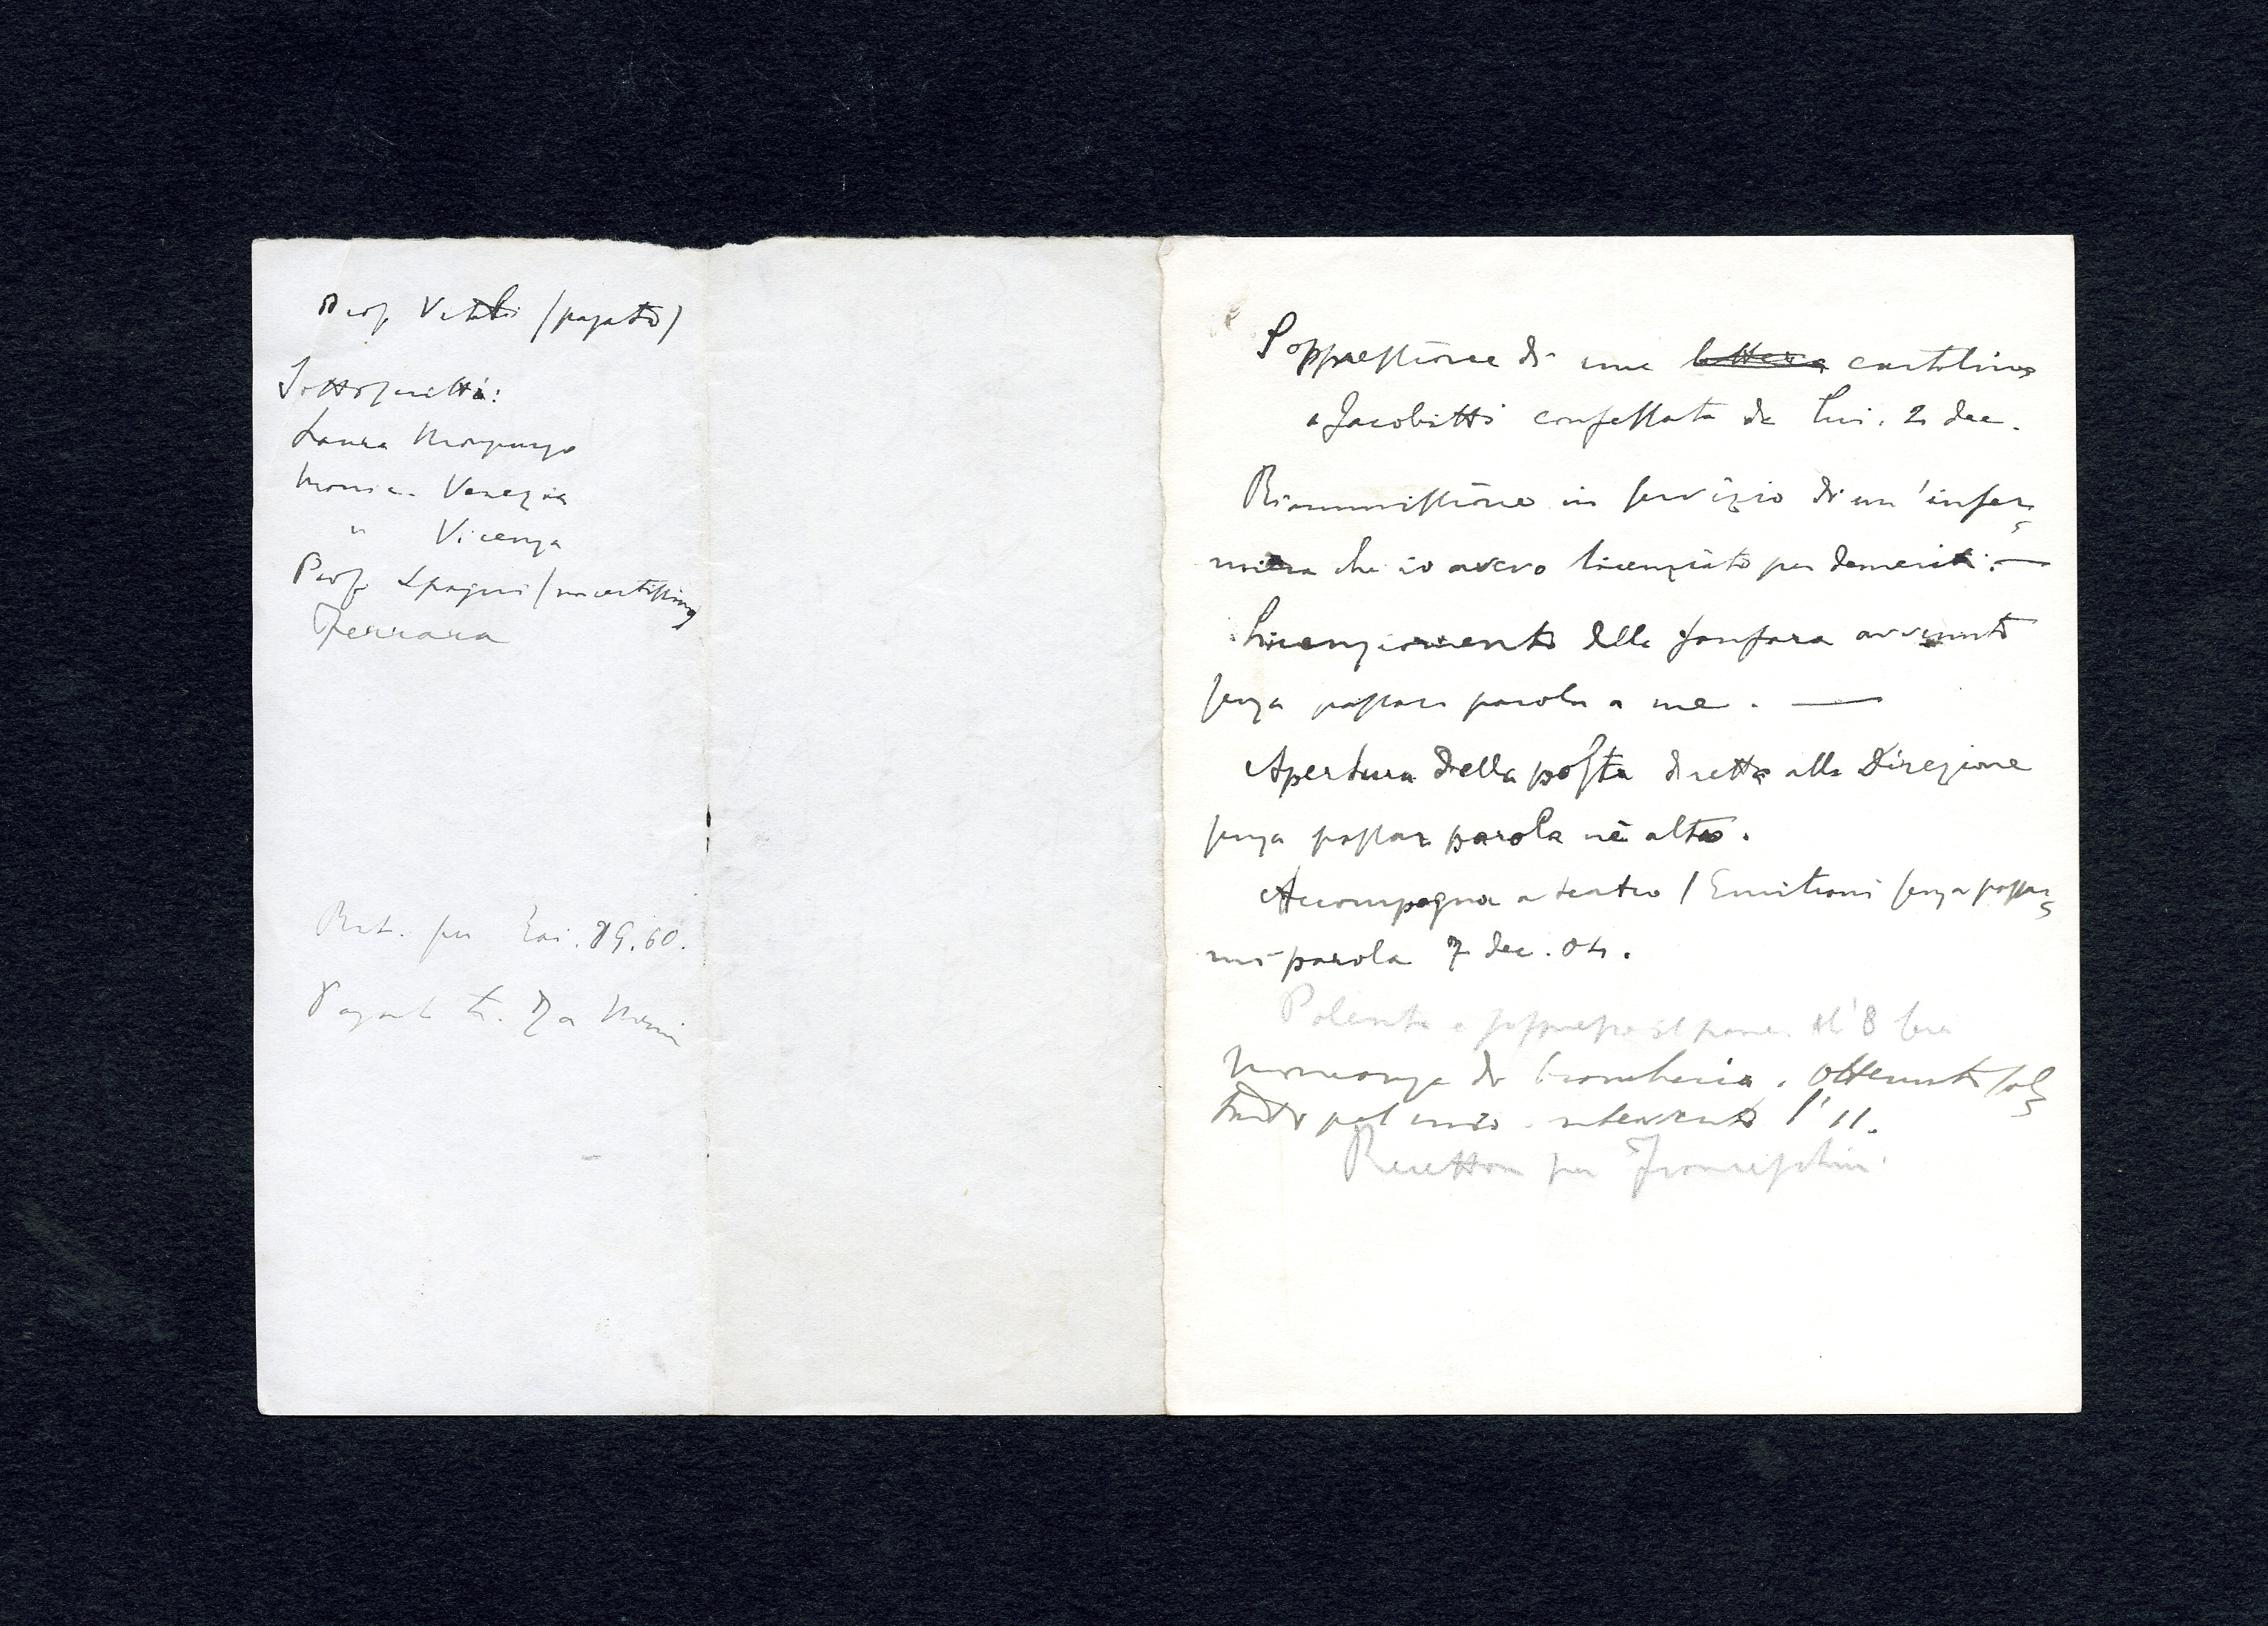 Prof. Vitali (pagato)
Sottoscritti:
Laura Morpurgo
Monic. Venezia
" Vicenza
Prof. Spagni (incertissimo)
Ferrara
per 89.60.
Da
Soppressione di una lettera cartolina
a Jacobitti confessata da lui. 2 dec.
Riammissione in servizio di un'infer=
miera che io avevo licenziato per demeriti. —
Licenziamento della fanfara avvenuto
senza passar parola a me. —
Apertura della posta diretta alla Direzione
senza passar parola nè altro.
Accompagna a teatro l'Emiliani senza passar=
mi parola 7 dec. 04.
Polenta e soppresso il pane. li 8 sera
Mancanza di biancheria. Ottenuta sol=
tanto pel mio intervento l'11.
per